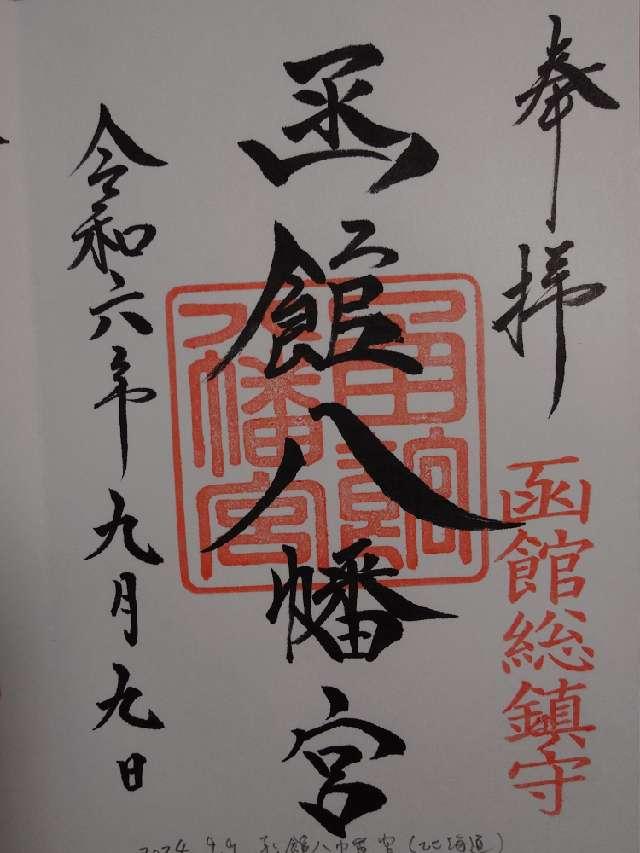 奉拝
函館総鎮守
函館八幡宮
令和六年九月九日
2024 9.9 函館八幡宮(北海道)